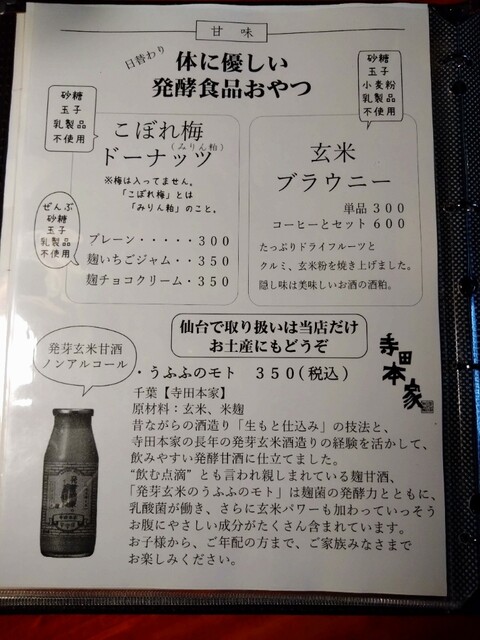 甘味
日替わり
体に優しい
発酵食品おやつ
砂糖
玉子
乳製品
不使用
砂糖
玉子
小麦粉
乳製品
不使用
こぼれ梅
(みりん粕)
ドーナッツ
※梅は入ってません。
「こぼれ梅」とは
「みりん粕」のこと。
ぜんぶ
砂糖
玉子
乳製品
不使用
プレーン・・・・・300
麹いちごジャム・・350
麹チョコクリーム・350
玄米
ブラウニー
単品 300
コーヒーとセット 600
たっぷりドライフルーツと
クルミ、玄米粉を焼き上げました。
隠し味は美味しいお酒の酒粕。
仙台で取り扱いは当店だけ
お土産にもどうぞ
発芽玄米甘酒
ノンアルコール
寺田本家
・うふふのモト 350(税込)
千葉【寺田本家】
原材料:玄米、米麹
昔ながらの酒造り「生もと仕込み」の技法と、
寺田本家の長年の発芽玄米酒造りの経験を活かして、
飲みやすい発酵甘酒に仕立てました。
“飲む点滴”とも言われ親しまれている麹甘酒、
「発芽玄米のうふふのモト」は麹菌の発酵力とともに、
乳酸菌が働き、さらに玄米パワーも加わっていっそう
お腹にやさしい成分がたくさん含まれています。
お子様から、ご年配の方まで、ご家族みなさまで
お楽しみください。